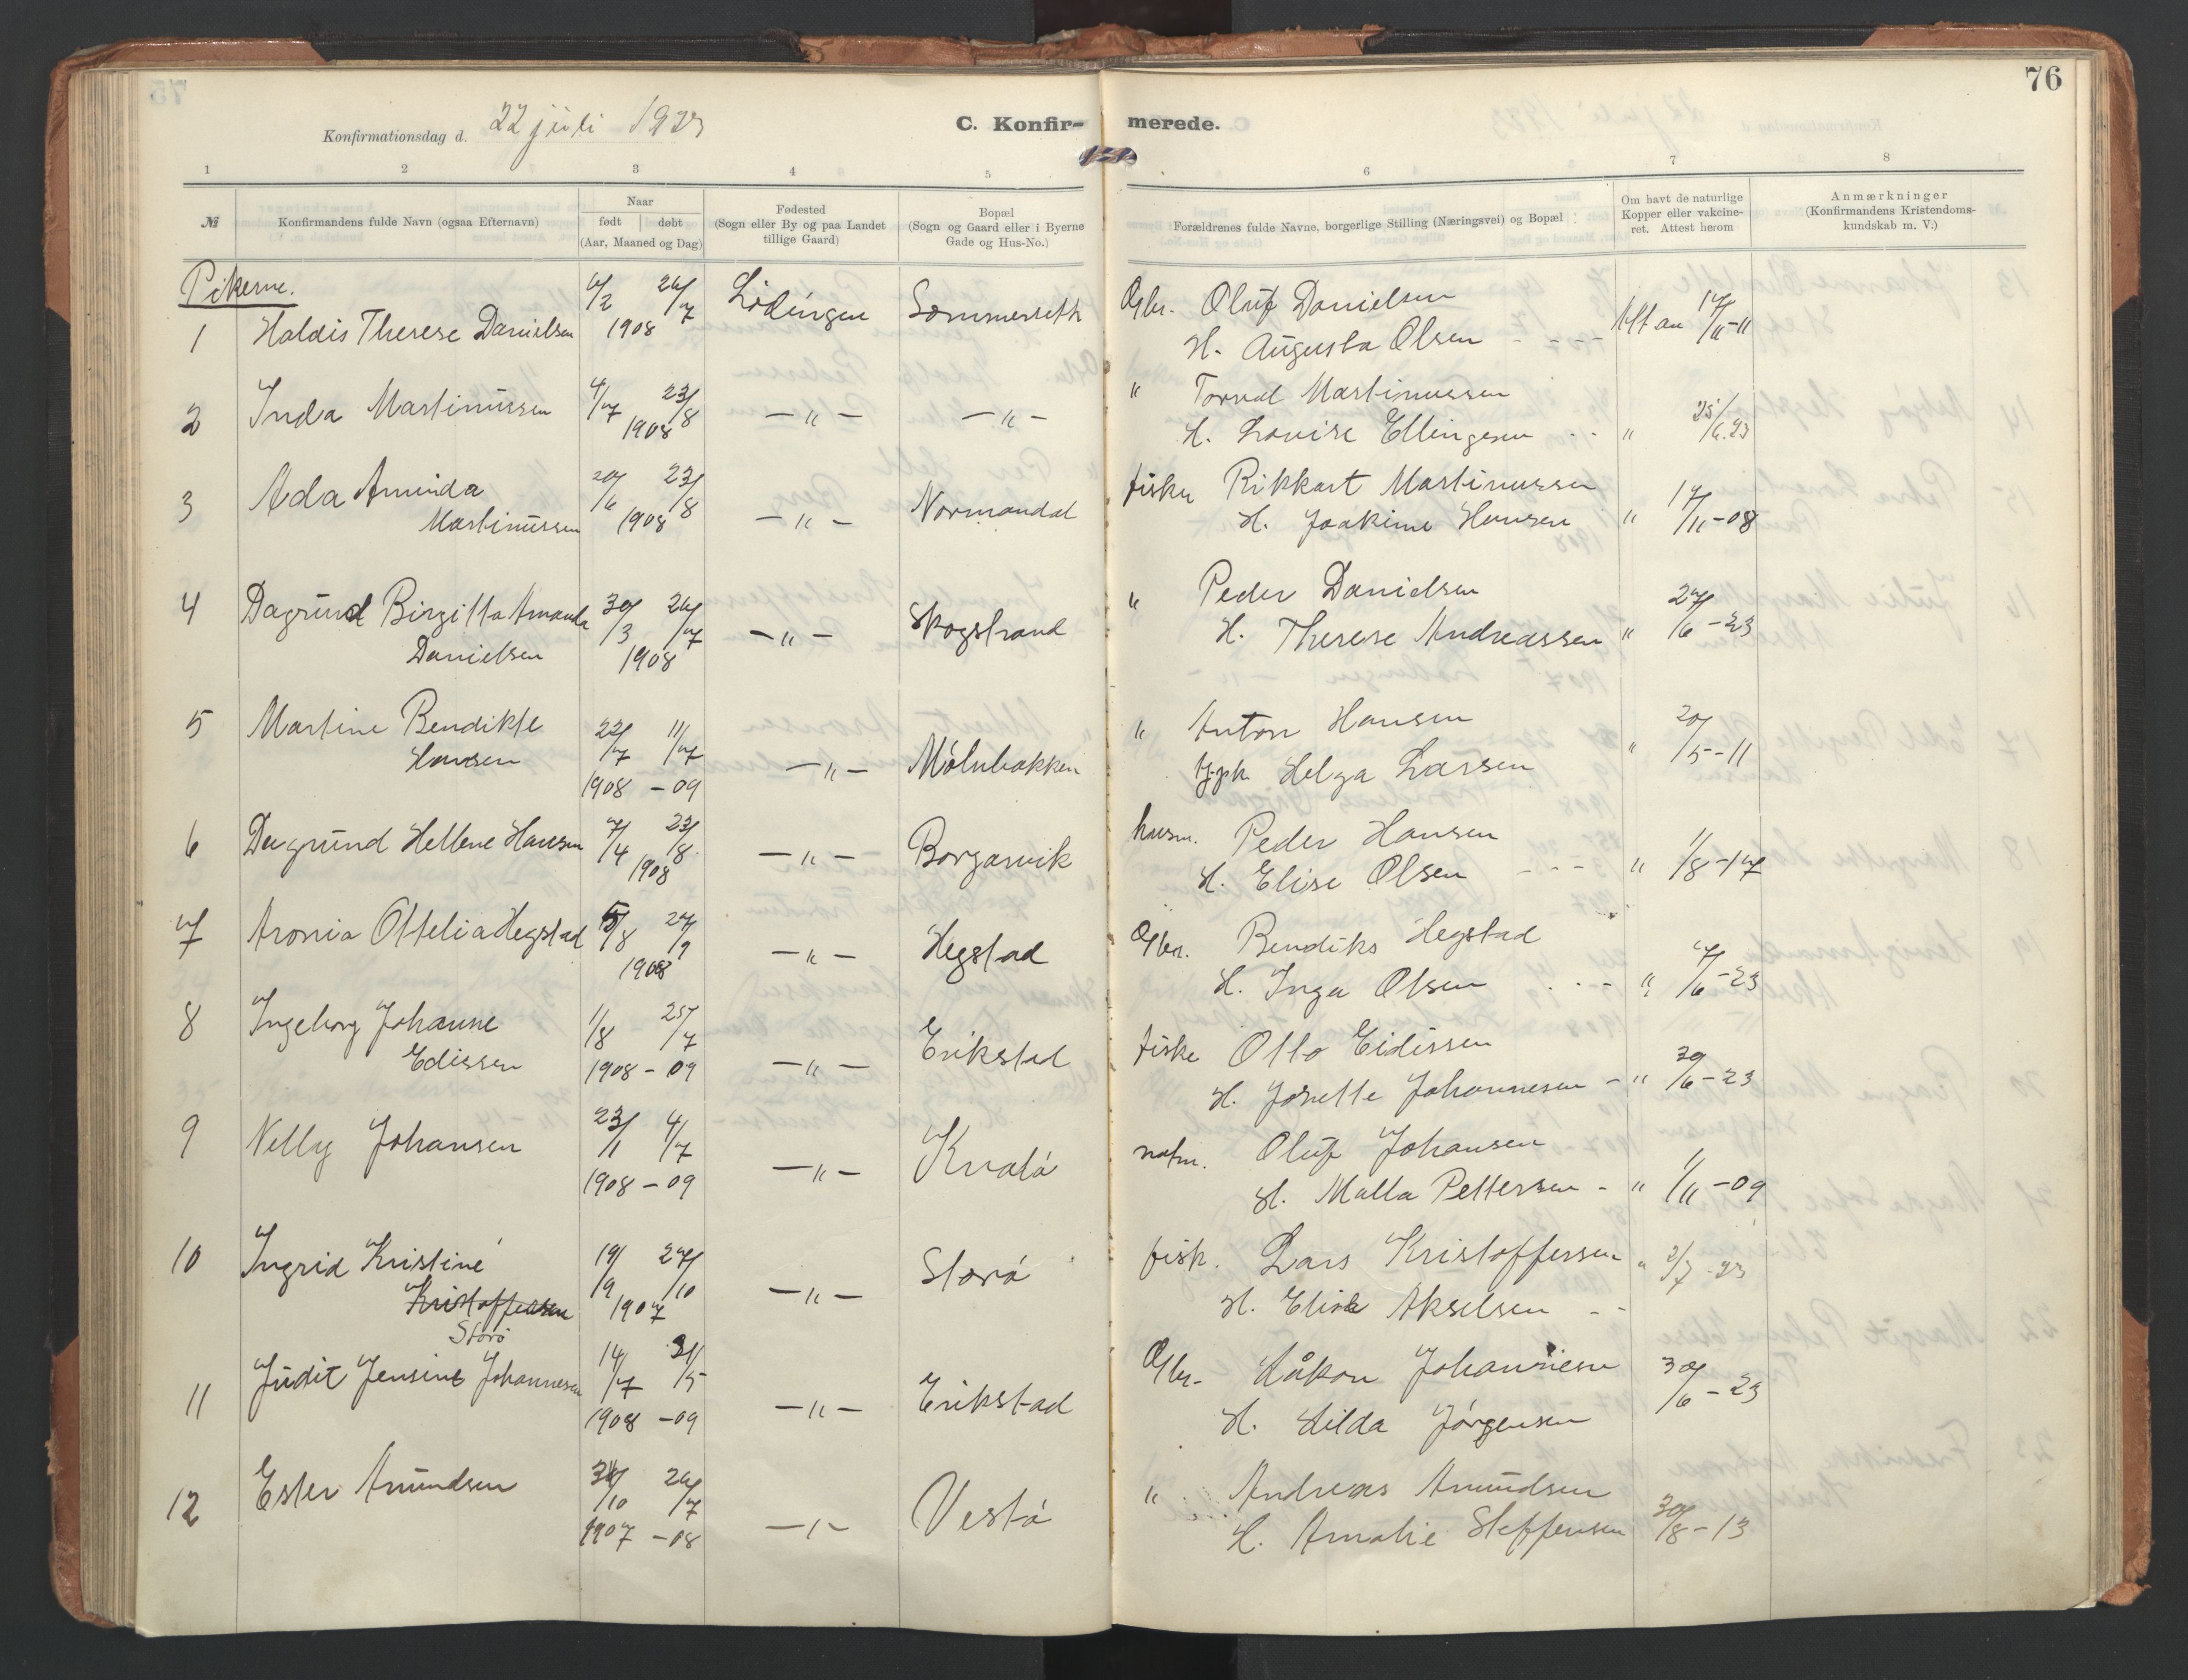 76
Konfirmationsdag d. 22 juli 1923
C. Konfir- merede.
1 2 3 4 5 6 7 8
№
Konfirmandens fulde Navn (ogsaa Efternavn)
Naar
født døbt
(Aar, Maaned og Dag)
Fødested
(Sogn eller By og paa Landet
tillige Gaard)
Bopæl
(Sogn og Gaard eller i Byerne
Gade og Hus-No.)
Forældrenes fulde Navne, borgerlige Stilling (Næringsvei) og Bopæl
Om havt de naturlige
Kopper eller vakcine-
ret. Attest herom
Anmærkninger
(Konfirmandens Kristendoms-
kundskab m. V.)
Pikerne.
1 Haldis Therese Danielsen 4/2 26/7 1908 Lödingen Sommerseth Gbr. Oluf Danielsen
H. Augusta Olsen - - - - Att av 17/11-11
2 Inda Martinussen 4/7 23/8 1908 -"- -"- " Torval Martinussen
H. Lovise Ellingsen - - " 25/6.23
3 Ada Aminda
Martinussen 20/6 23/8 1908 -"- Normandal fisker Rikkart Martinussen
H. Joakime Hansen " 17/11-08
4 Dagrund Birgitta Amanda
Danielsen 30/3 26/7 1908 -"- Skogstrand " Peder Danielsen
H. Therese Andreassen " 27/6-23
5 Martine Bendikte
Hansen 22/7 11/7 1908 -09 -"- Mölnbakken " Anton Hansen
Helga Larsen " 20/5-11
6 Dagrund Hellene Hansen 7/4 23/8 1908 -"- Borgarvik husm. Peder Hansen
H. Elise Olsen - - - " 1/8-17
7 Aronia Ottelia Hegstad 5/8 27/9 1908 -"- Hegstad Gbr. Bendiks Hegstad
H. Inga Olsen - - - " 7/6-23
8 Ingeborg Johanne
Edissen 1/8 25/7 1908-09 -"- Erikstad fiske Otto Eidissen
H. Josette Johannesen - " 30/6-23
9 Nelly Johansen 23/1 4/7 1908-09 -"- Kvalö Oluf Johansen
H. Malla Pettersen - " 1/11-09
10 Ingrid Kristine
Kristoffersen
Storö 19/9 27/10 1907 -"- Storö fisk. Lars Kristoffersen " 2/7-23
H. Elise Akselsen - -
11 Judit Jensine Johannesen 14/7 31/5 1908 -09 -"- Erikstad Gbr. Håkon Johannesen
H. Hilda Jörgensen 30/6-23
12 Ester Amundsen 10 26/7 1907 -08 -"- Vestö " Andreas Amundsen
H. Amalie Steffensen 30/8-13